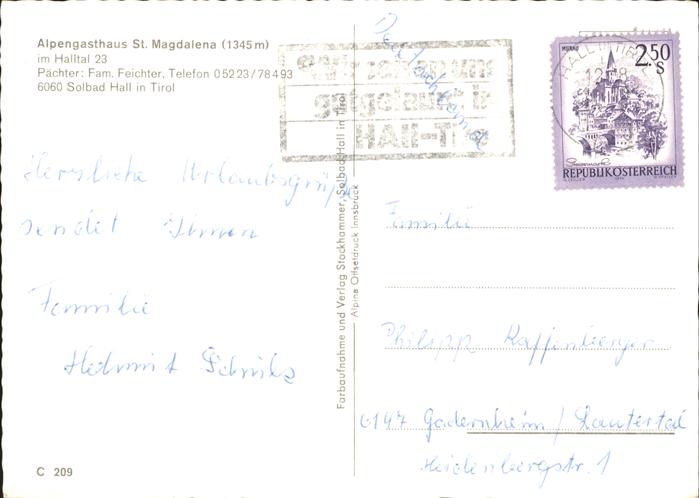 Alpengasthaus St. Magdalena (1345 m)
im Halltal 23
Pächter: Fam. Feichter, Telefon 0 52 23 / 7 84 93
6060 Solbad Hall in Tirol
Herzliche Urlaubsgrüße
sendet Ihnen
Familie
Helmut
C 209
Farbaufnahme und Verlag Stockhammer, Solbad Hall in Tirol
Alpina Offsetdruck Innsbruck
HALL
MURAU
2.50
S
Steiermark
REPUBLIK ÖSTERREICH
Familie
Philipp Kaffenberger
6147 Gadernheim / Lautertal
Heidenbergstr. 1